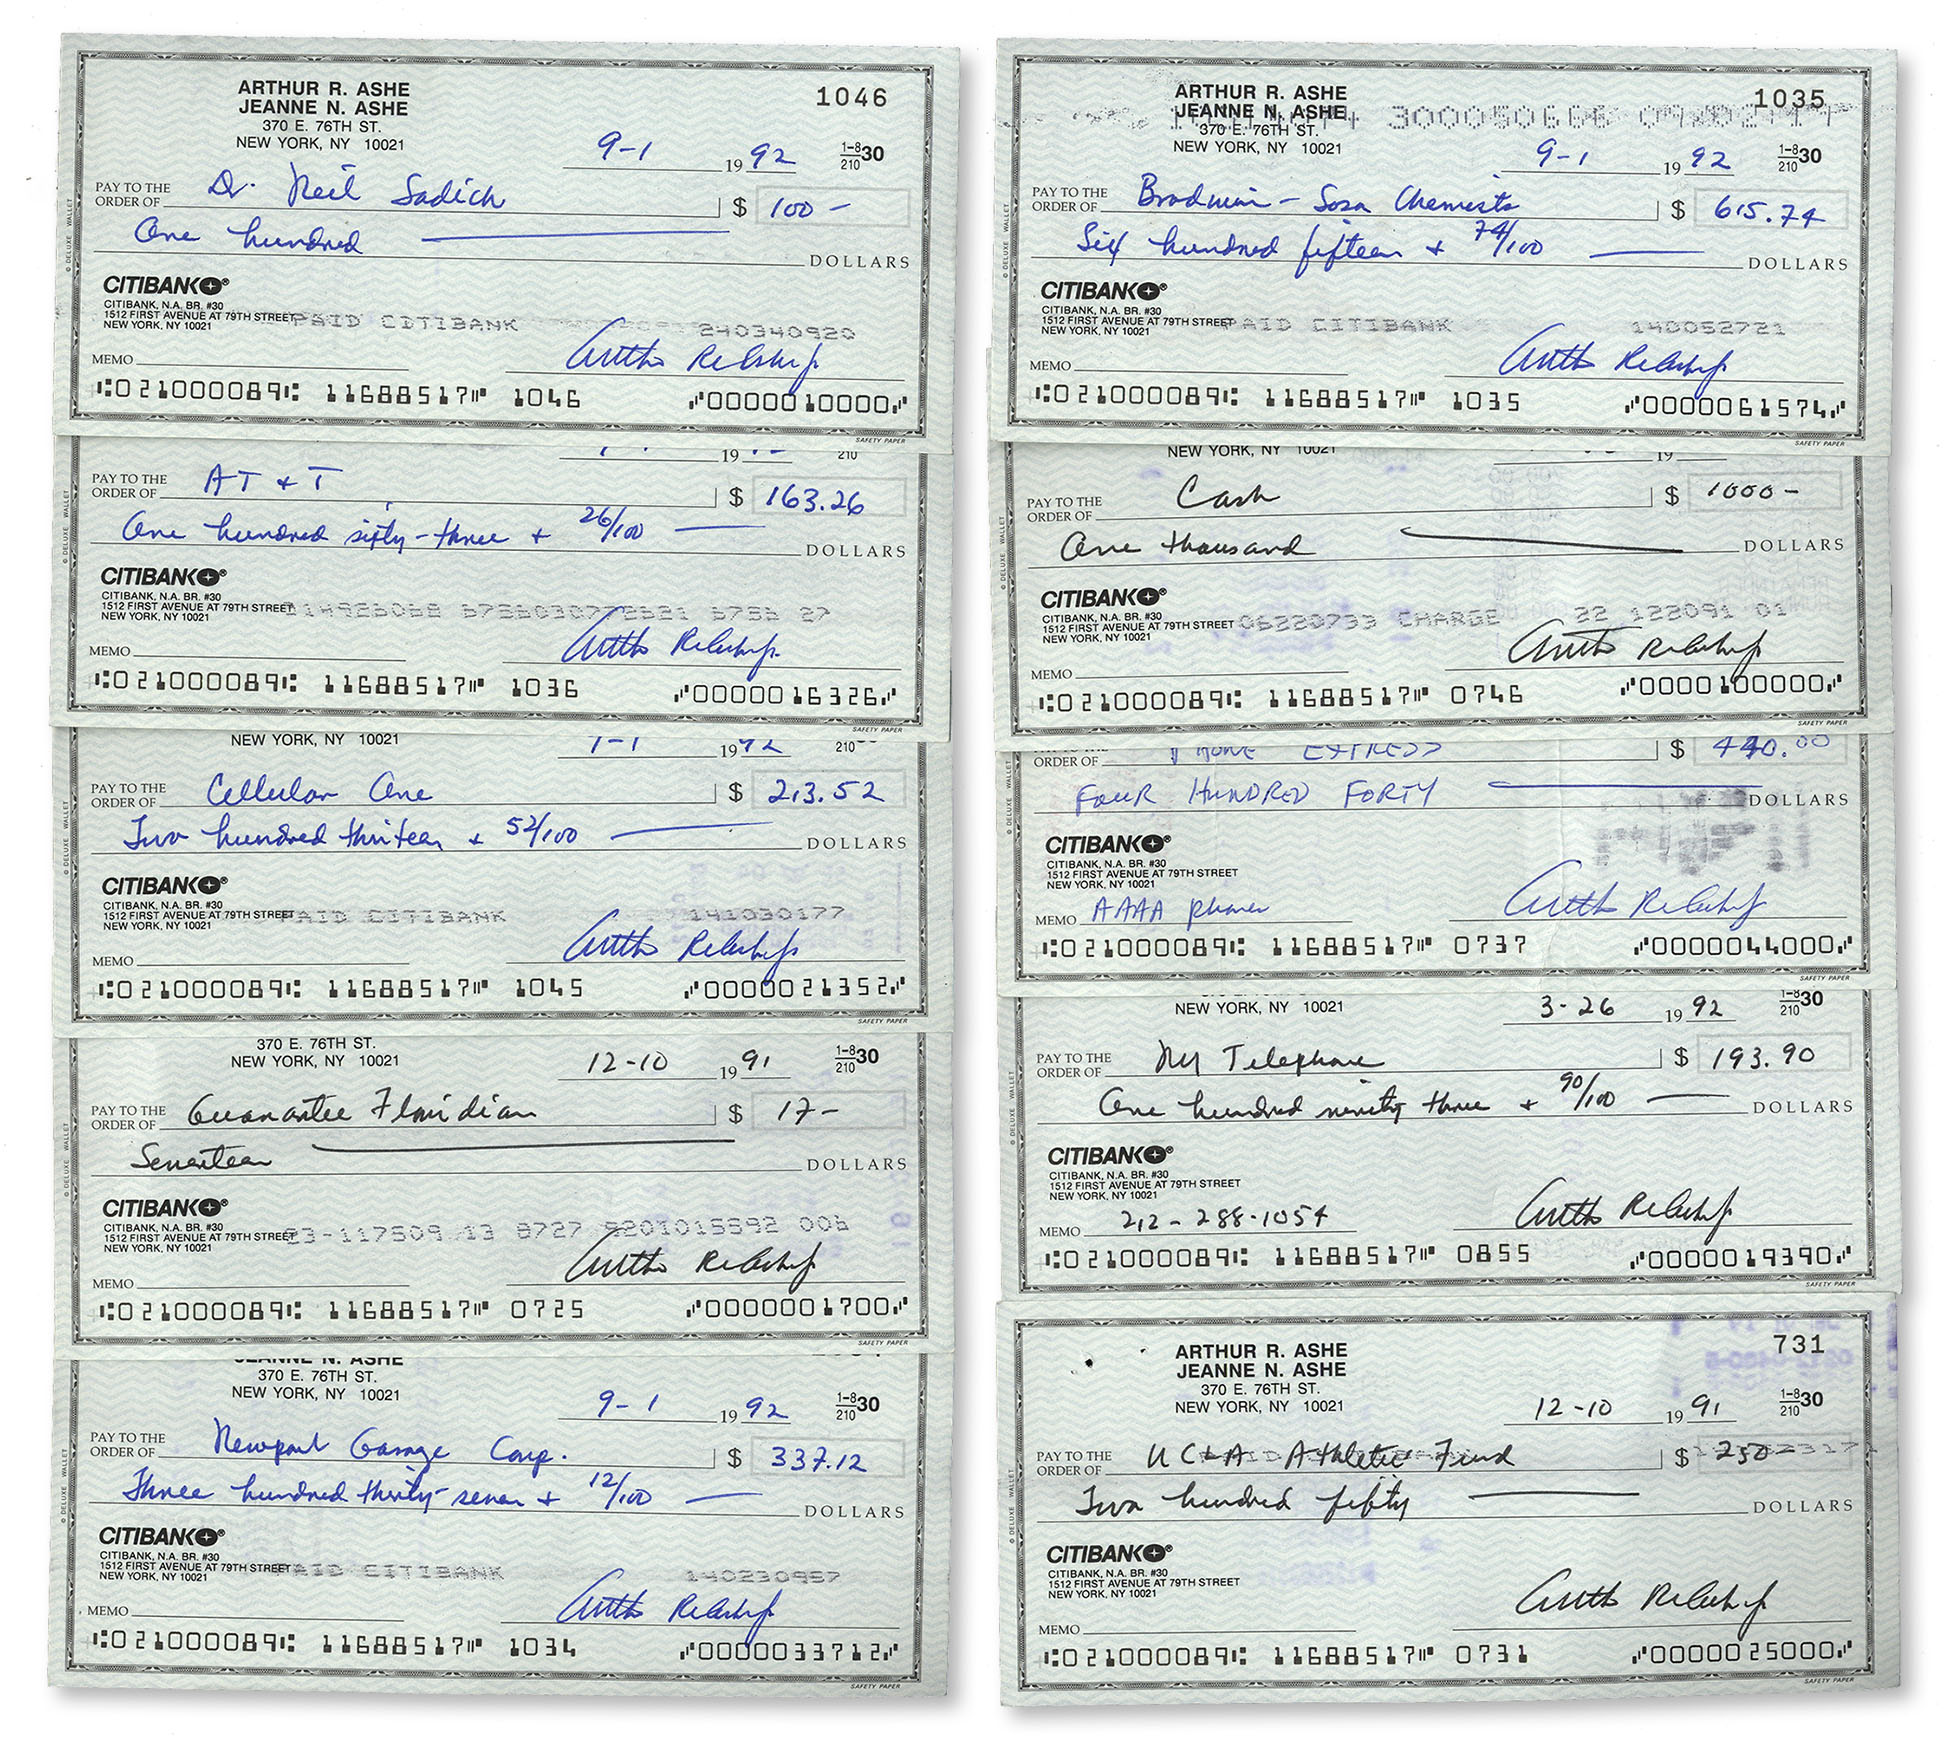 ARTHUR R. ASHE
JEANNE N. ASHE
370 E. 76TH ST.
NEW YORK, NY 10021
1046
9-1 19 92
1-8/210 30
PAY TO THE ORDER OF Dr. Neil Sadick $ 100 -
One hundred DOLLARS
CITIBANK
CITIBANK, N.A. BR. #30
1512 FIRST AVENUE AT 79TH STREET
NEW YORK, NY 10021
PAID CITIBANK 240340920
MEMO
⑆021000089⑆ 11688517⑈ 1046 ⑇0000010000⑇
© DELUXE WALLET
SAFETY PAPER
19
210
PAY TO THE ORDER OF AT & T $ 163.26
One hundred sixty-three + 26/100 DOLLARS
CITIBANK
CITIBANK, N.A. BR. #30
1512 FIRST AVENUE AT 79TH STREET
NEW YORK, NY 10021
MEMO
⑆021000089⑆ 11688517⑈ 1036 ⑇0000016326⑇
© DELUXE WALLET
SAFETY PAPER
NEW YORK, NY 10021
19 92
210
PAY TO THE ORDER OF Cellular One $ 213.52
Two hundred thirteen + 52/100 DOLLARS
CITIBANK
CITIBANK, N.A. BR. #30
1512 FIRST AVENUE AT 79TH STREET
NEW YORK, NY 10021
PAID CITIBANK 141030177
MEMO
⑆021000089⑆ 11688517⑈ 1045 ⑇0000021352⑇
© DELUXE WALLET
SAFETY PAPER
370 E. 76TH ST.
NEW YORK, NY 10021
12-10 19 91
1-8/210 30
PAY TO THE ORDER OF Guarantee Floridian $ 17 -
Seventeen DOLLARS
CITIBANK
CITIBANK, N.A. BR. #30
1512 FIRST AVENUE AT 79TH STREET
NEW YORK, NY 10021
MEMO
⑆021000089⑆ 11688517⑈ 0725 ⑇0000001700⑇
© DELUXE WALLET
SAFETY PAPER
JEANNE N. ASHE
370 E. 76TH ST.
NEW YORK, NY 10021
9-1 19 92
1-8/210 30
PAY TO THE ORDER OF Newport Garage Corp. $ 337.12
Three hundred thirty-seven + 12/100 DOLLARS
CITIBANK
CITIBANK, N.A. BR. #30
1512 FIRST AVENUE AT 79TH STREET
NEW YORK, NY 10021
PAID CITIBANK 140230957
MEMO
⑆021000089⑆ 11688517⑈ 1034 ⑇0000033712⑇
© DELUXE WALLET
SAFETY PAPER
ARTHUR R. ASHE
JEANNE N. ASHE
370 E. 76TH ST.
NEW YORK, NY 10021
1035
9-1 19 92
1-8/210 30
PAY TO THE ORDER OF Chemists $ 615.74
Six hundred fifteen + 74/100 DOLLARS
CITIBANK
CITIBANK, N.A. BR. #30
1512 FIRST AVENUE AT 79TH STREET
NEW YORK, NY 10021
PAID CITIBANK 140052721
MEMO
⑆021000089⑆ 11688517⑈ 1035 ⑇0000061574⑇
© DELUXE WALLET
SAFETY PAPER
NEW YORK, NY 10021
19
PAY TO THE ORDER OF Cash $ 1000 -
One thousand DOLLARS
CITIBANK
CITIBANK, N.A. BR. #30
1512 FIRST AVENUE AT 79TH STREET
NEW YORK, NY 10021
06220733 CHARGE 22 122091 01
MEMO
⑆021000089⑆ 11688517⑈ 0746 ⑇0000100000⑇
© DELUXE WALLET
SAFETY PAPER
ORDER OF PHONE EXPRESS $ 440.00
FOUR HUNDRED FORTY DOLLARS
CITIBANK
CITIBANK, N.A. BR. #30
1512 FIRST AVENUE AT 79TH STREET
NEW YORK, NY 10021
MEMO AAAA phones
⑆021000089⑆ 11688517⑈ 0737 ⑇0000044000⑇
© DELUXE WALLET
SAFETY PAPER
NEW YORK, NY 10021
3-26 19 92
1-8/210 30
PAY TO THE ORDER OF NY Telephone $ 193.90
One hundred ninety three + 90/100 DOLLARS
CITIBANK
CITIBANK, N.A. BR. #30
1512 FIRST AVENUE AT 79TH STREET
NEW YORK, NY 10021
MEMO 212-288-1054
⑆021000089⑆ 11688517⑈ 0855 ⑇0000019390⑇
© DELUXE WALLET
SAFETY PAPER
ARTHUR R. ASHE
JEANNE N. ASHE
370 E. 76TH ST.
NEW YORK, NY 10021
731
12-10 19 91
1-8/210 30
PAY TO THE ORDER OF UCLA Athletic Fund $ 250
Two hundred fifty DOLLARS
CITIBANK
CITIBANK, N.A. BR. #30
1512 FIRST AVENUE AT 79TH STREET
NEW YORK, NY 10021
MEMO
⑆021000089⑆ 11688517⑈ 0731 ⑇0000025000⑇
© DELUXE WALLET
SAFETY PAPER